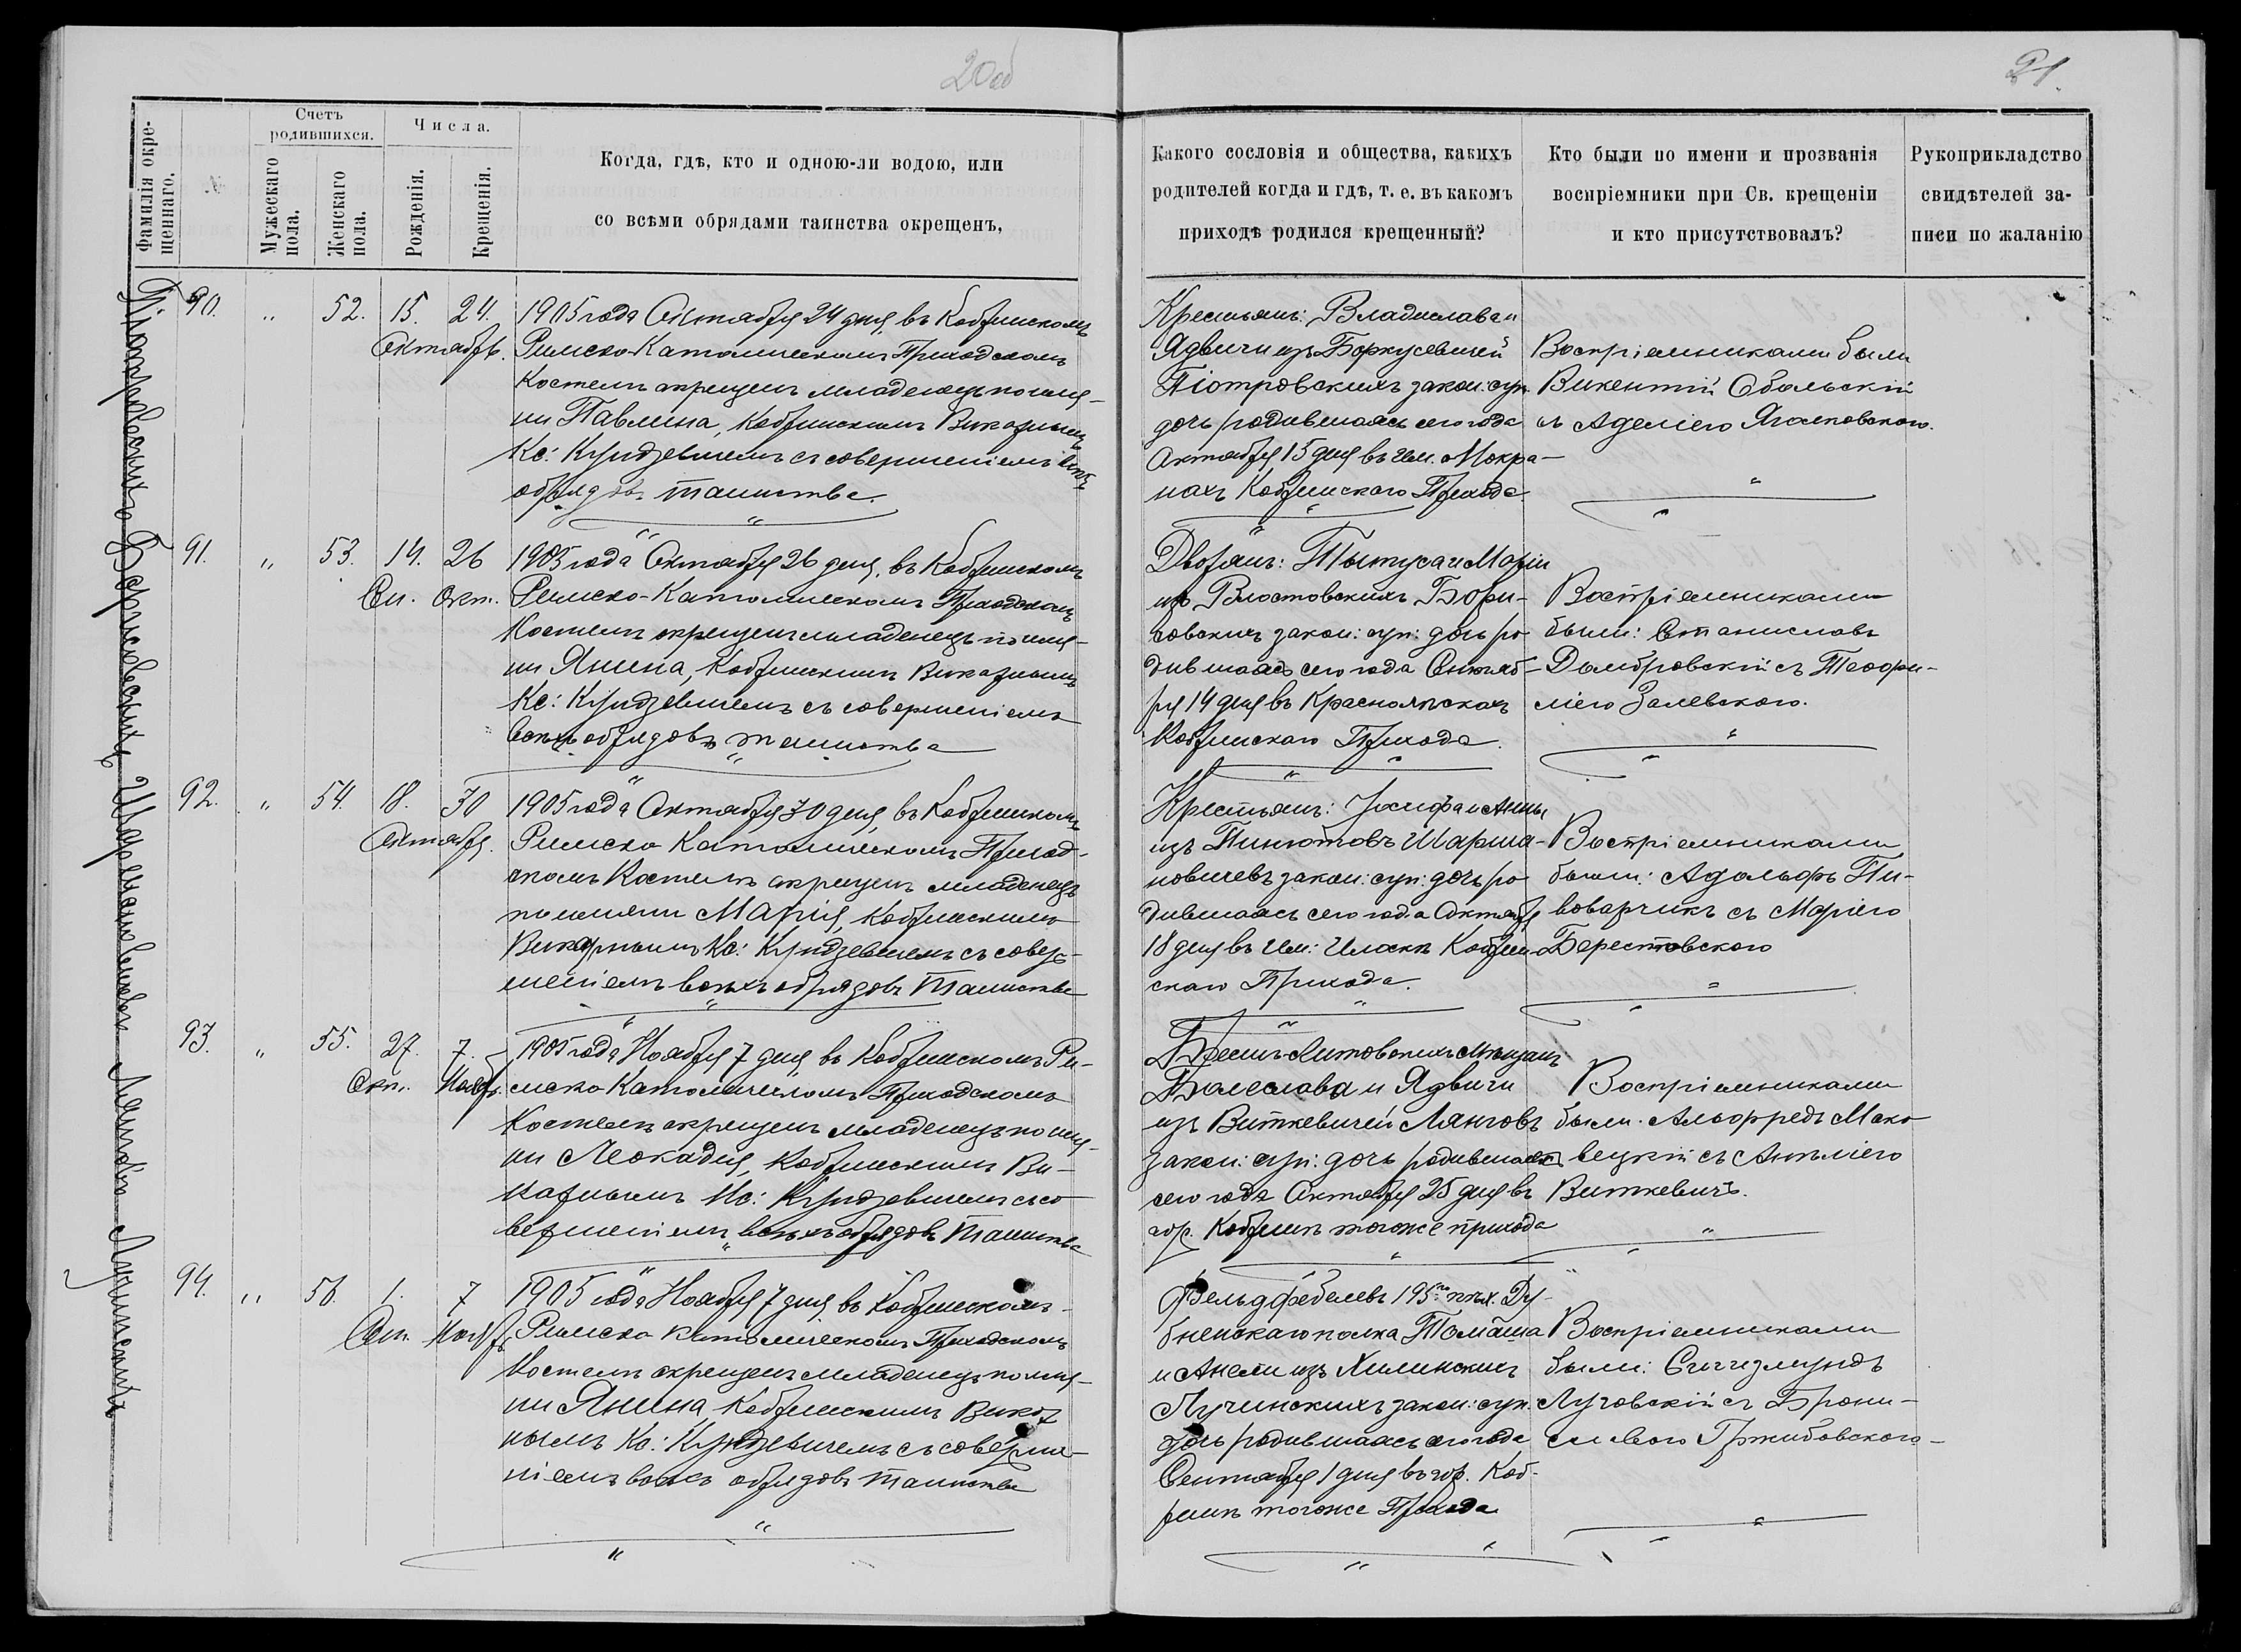 20об
21.
Фамилія окре-
щеннаго.
№
Счетъ
родившихся.
Мужескаго
пола.
Женскаго
пола.
Числа.
Рожденія.
Крещенія.
Когда, гдѣ, кто и одною-ли водою, или
со всѣми обрядами таинства окрещенъ,
Какого сословія и общества, какихъ
родителей когда и гдѣ, т. е. въ какомъ
приходѣ родился крещенный?
Кто были по имени и прозванія
воспріемники при Св. крещеніи
и кто присутствовалъ?
Рукоприкладство
свидѣтелей за-
писи по жаланію
90. " 52. 15. 24.
Октября.
1905 года Октября 24 дня, въ Кобринскомъ
Римско-Католическомъ Приходскомъ
Костелѣ окрещенъ младенецъ по име-
ни Павлина, Кобринскимъ Викарнымъ
Кс: с совершеніемъ всѣхъ
обрядовъ таинства.
Крестьянъ: Владислава и
Ядвиги изъ Боркусевичей
Піотровскихъ закон: суп.
дочь родившаяся сего года
Октября 15 дня въ им. Мокра-
нахъ Кобринскаго Прихода.
Воспріемниками были
Викентій Обольскій
съ Аделіею
91. " 53. 14. 26
Сен. Окт.
1905 года Октября 26 дня, въ Кобринскомъ
Римско-Католическомъ Приходскомъ
Костелѣ окрещенъ младенецъ по име-
ни Янина, Кобринскимъ Викарнымъ
Кс: съ совершеніемъ
всѣхъ обрядовъ таинства
Дворянъ: Тытуса и Маріи
изъ Влостовскихъ Бори-
совскихъ закон: суп: дочь ро
дившаяся сего года Сентяб-
ря 14 дня въ
Кобринскаго Прихода.
Воспріемниками
были: Станиславъ
Домбровскій съ Теофи-
ліею Залевскою.
92. " 54. 18. 30
Октября.
1905 года Октября 30 дня, въ Кобринскомъ
Римско Католическомъ Приход-
скомъ Костелѣ окрещенъ младенецъ
по имени Марія, Кобринскимъ
Викарнымъ Кс: съ совер-
шеніемъ всѣхъ обрядовъ Таинства
Крестьянъ: Іосифа и Анны
изъ Пинютовъ Шарша-
новичевъ закон: суп: дочь ро
дившаяся сего года Октября
18 дня въ им: Кобрин
скаго Прихода.
Воспріемниками
были: Адольфъ Пи-
воварчикъ съ Маріею
Берестовскою
93. " 55. 27. 7.
Окт. Нояб.
1905 года Ноября 7 дня, въ Кобринскомъ Ри-
мско Католическомъ Приходскомъ
Костелѣ окрещенъ младенецъ по име-
ни Леокадія, Кобринскимъ Ви-
карнымъ Кс: съ со
вершеніемъ всѣхъ обрядовъ Таинства
Брестъ-Литовскихъ Мѣщанъ
Болеслава и Ядвиги
изъ Виткевичей Ланговъ
закон: суп: дочь родившаяся
сего года Октября 25 дня въ
гор. Кобринѣ тогоже прихода
Воспріемниками
были. Альфредъ Мако
вецкій съ Анеліею
Виткевичъ.
94. " 56. 1. 7
Сен. Ноябр.
1905 года Ноября 7 дня, въ Кобринскомъ
Римско Католическомъ Приходскомъ
Костелѣ окрещенъ младенецъ по име-
ни Янина Кобринскимъ Викар
нымъ Кс: съ соверше-
ніемъ всѣхъ обрядовъ таинства
Фельдфебелевъ 195го пѣх. Ду-
бненскаго полка Томаша
и Анели изъ Хилинскихъ
Лучинскихъ закон: суп.
дочь родившаяся сего года
Сентября 1 дня въ гор. Коб-
ринѣ тогоже Прихода
Воспріемниками
были: Сигизмундъ
Луговскій съ Брони-
славою Гржибовскою